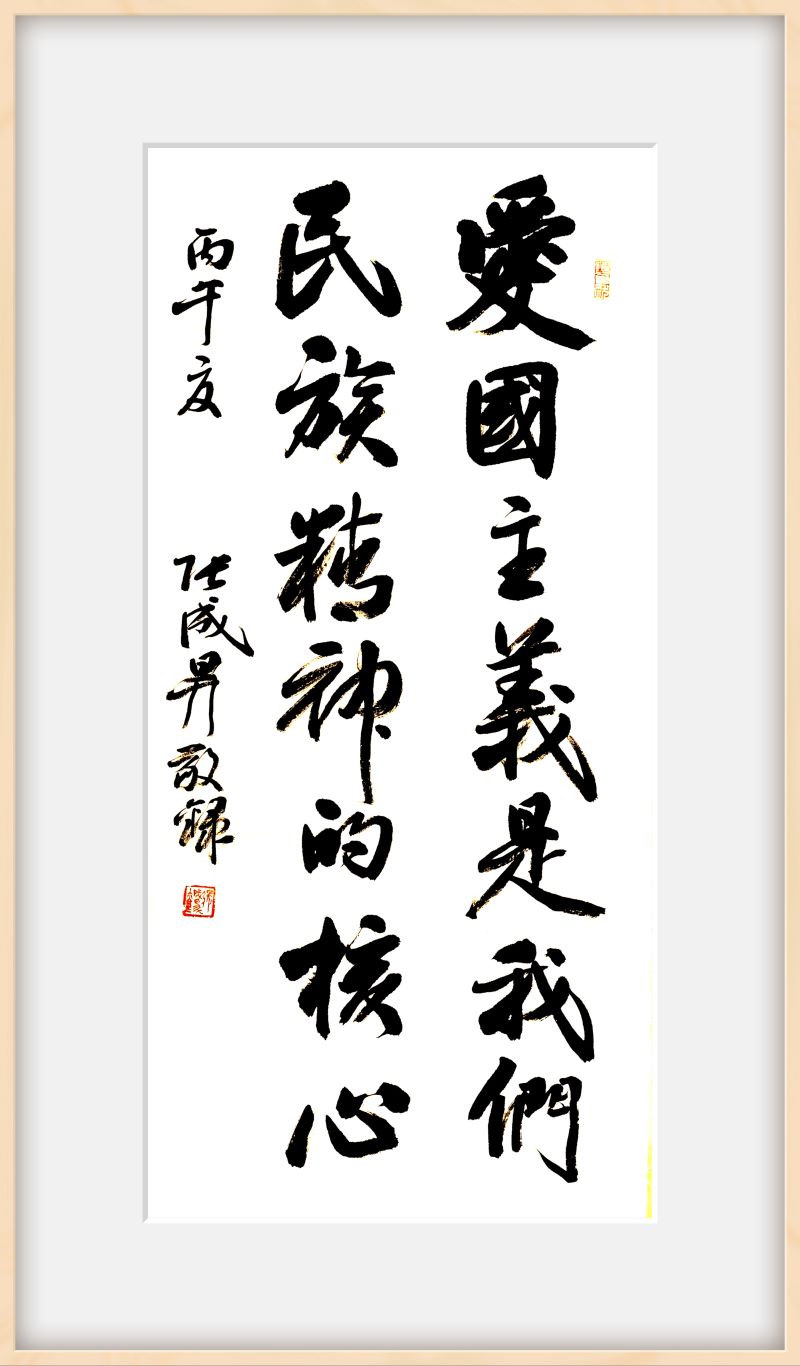 愛國主義是我們
民族精神的核心
丙午夏
張成昇敬録